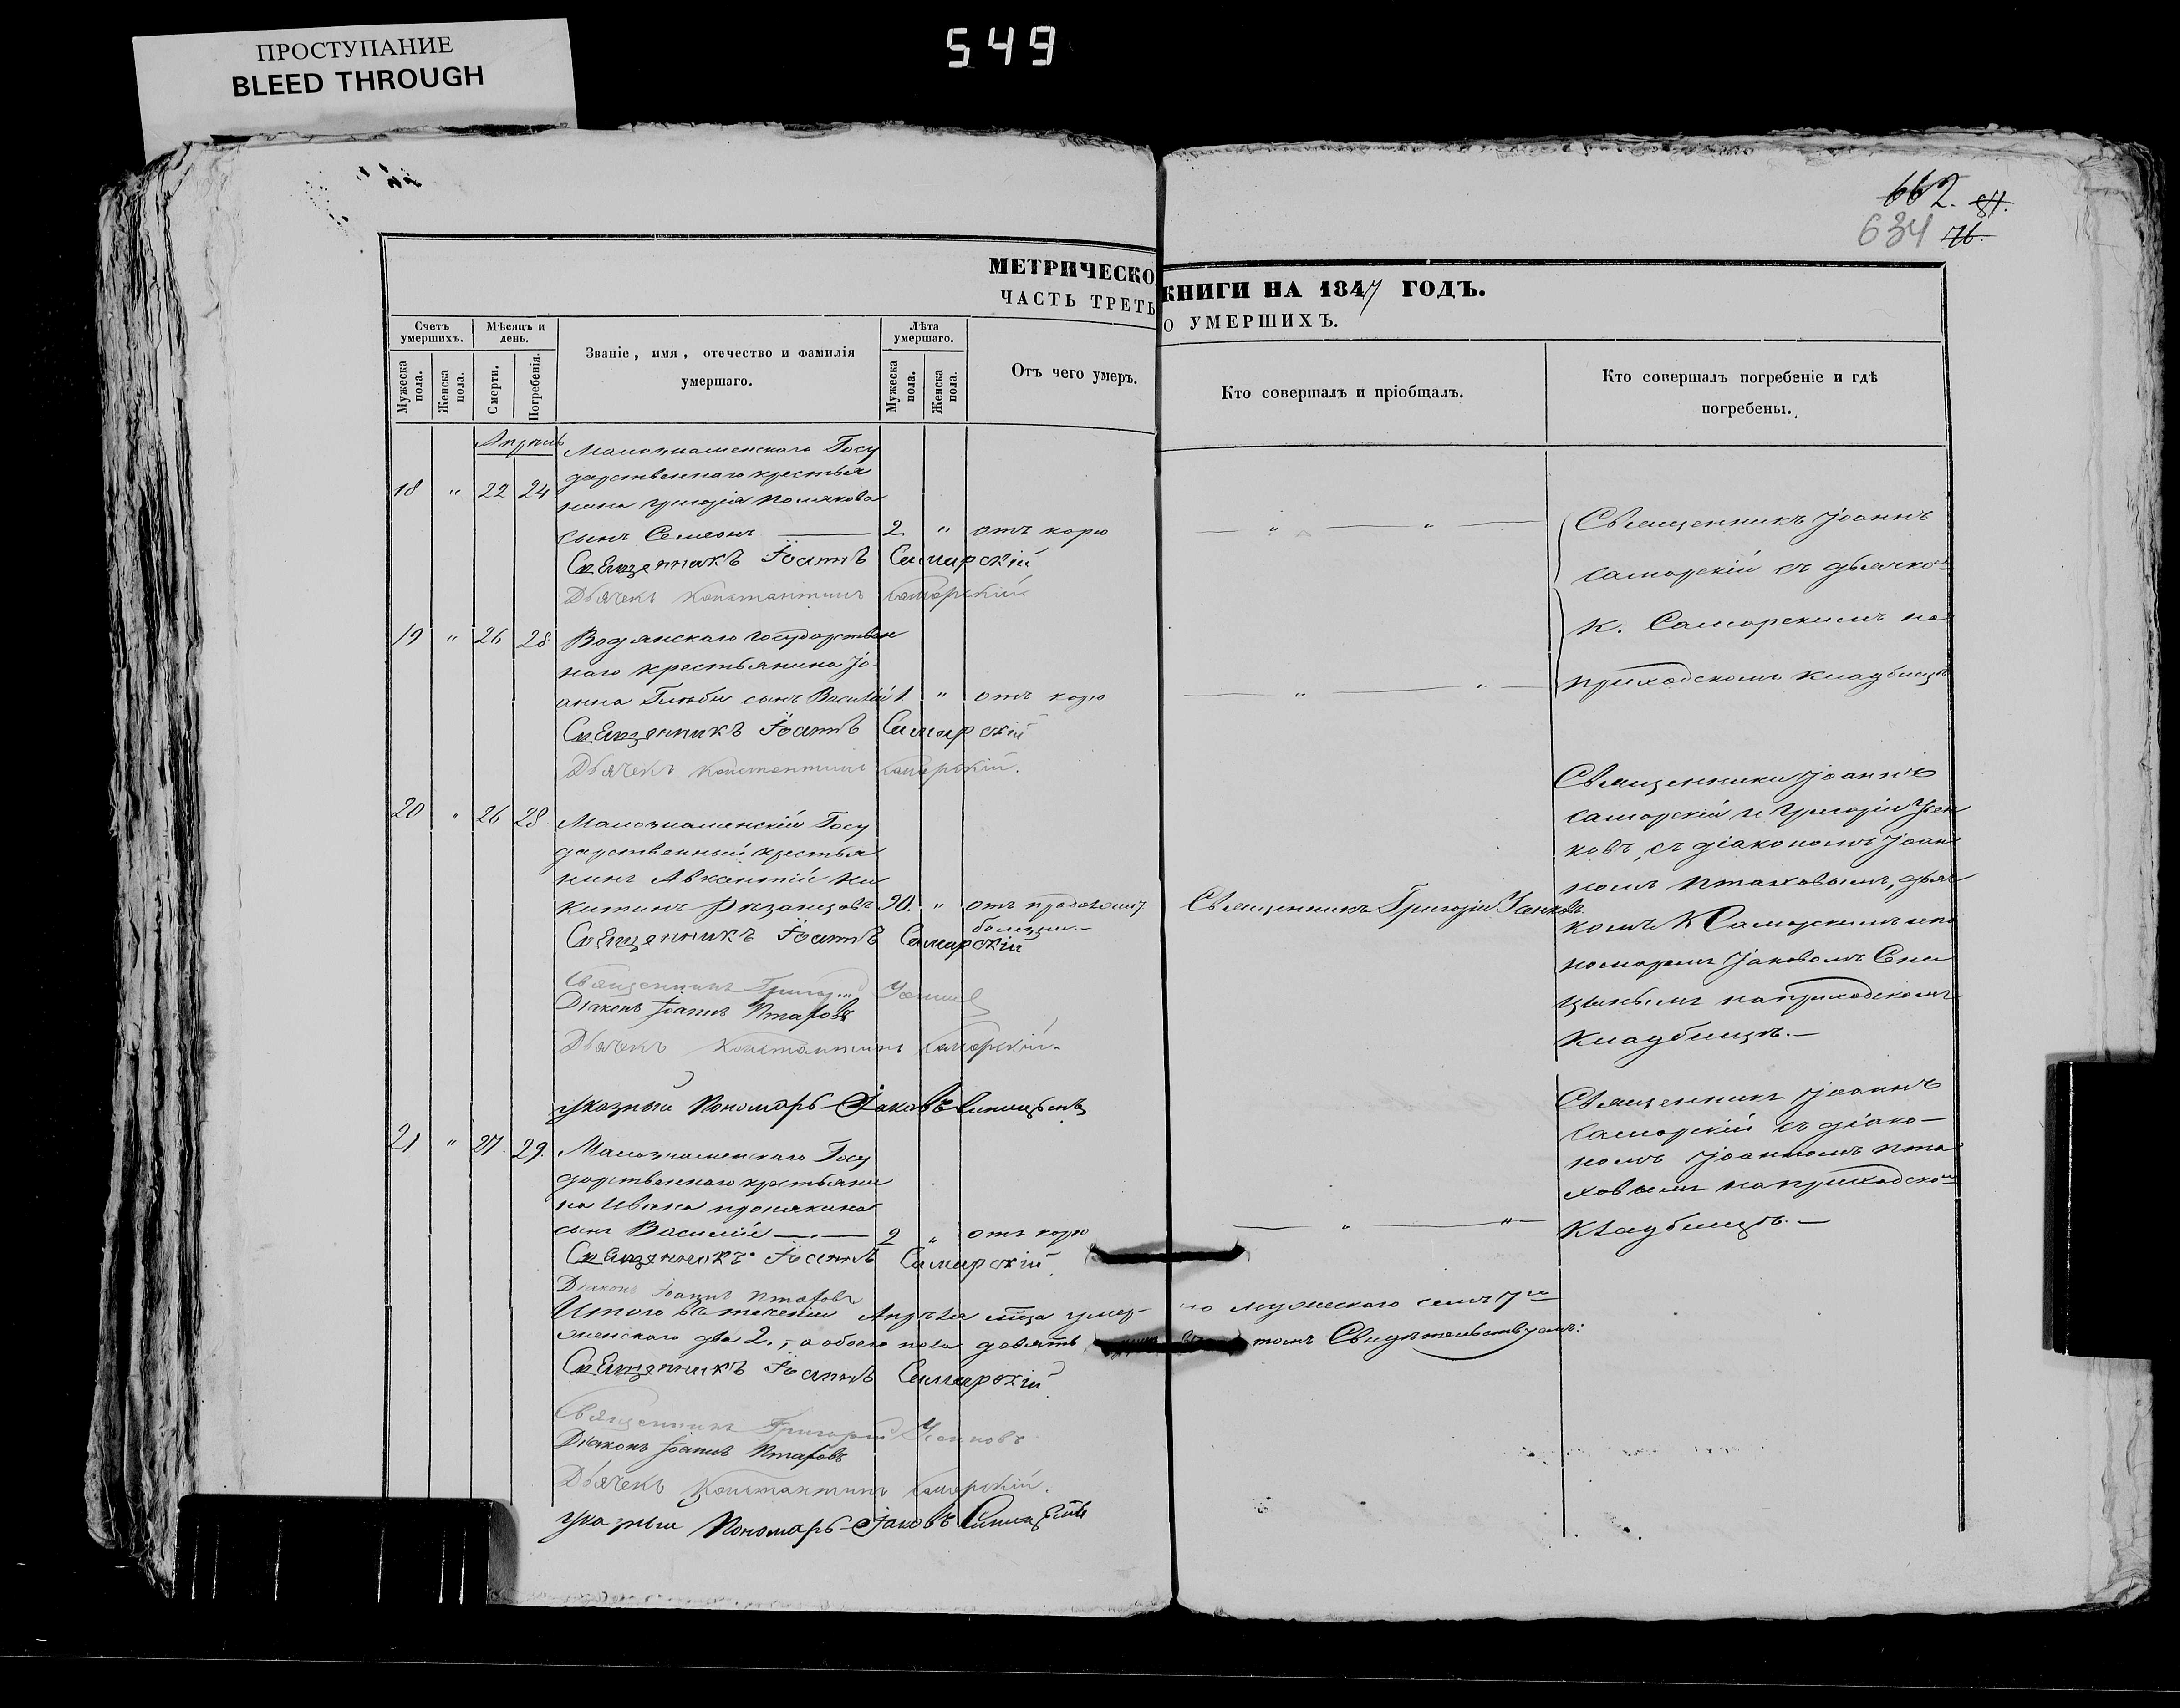 ПРОСТУПАНИЕ
BLEED THROUGH
549
662. 81.
634 76.
МЕТРИЧЕСКО КНИГИ НА 1847 ГОДЪ.
ЧАСТЬ ТРЕТЬ О УМЕРШИХЪ.
Счетъ умершихъ.
Мужеска пола.
Женска пола.
Мѣсяцъ и день.
Смерти.
Погребенія.
Званіе, имя, отечество и фамилія
умершаго.
Лѣта умершаго.
Мужеска пола.
Женска пола.
Отъ чего умеръ.
Кто совершалъ и пріобщалъ.
Кто совершалъ погребеніе и гдѣ
погребены.
Апрѣль
18 " 22 24
Малознаменскаго Госу
дарственнаго крестья
нина Григорія Полякова
сынъ Семеонъ 2. " отъ корю
Священникъ Іоаннъ Самарскій
Дьячекъ Константинъ Самарскій
Священникъ Іоаннъ
Самарскій съ дьячко
К. Самарскимъ на
приходскомъ кладбищѣ
19 " 26 28
Водянскаго Государствен
наго крестьянина Іо
анна сынъ Василій 1 " отъ корю
Священникъ Іоаннъ Самарскій
Дьячекъ Константинъ Самарскій.
20 " 26 28.
Малознаменскій Госу
дарственный крестья
нинъ Авксентій Ни
китинъ Рязанцовъ 90. " отъ
болезни.
Священникъ Григорій Усенковъ
Священникъ Іоаннъ Самарскій
Священникъ Григорій
Діаконъ Іоаннъ Птаховъ
Дьячекъ Константинъ Самарскій.
указный Пономарь Іаковъ Синицынъ
Священники Іоаннъ
Самарскій и Григорій Усен
ковъ, съ діакономъ Іоан
номъ Птаховымъ, дьяч
комъ К Самарскимъ и по
номаремъ Іаковомъ Сини
цынымъ на приходскомъ
Кладбищѣ.—
21 " 27. 29.
Малознаменскаго Госу
дарственнаго крестьяни
на Ивана
сынъ Василій 2 " отъ корю
Священникъ Іоаннъ Самарскій
Діаконъ Іоаннъ Птаховъ
Священникъ Іоаннъ
Самарскій съ діако-
номъ Іоанномъ Пта
ховымъ на приходском
Кладбищѣ.—
Итого въ теченіи Апрѣля мца умер- ло мужескаго семь 7
женскаго два 2., а обоего пола девять томъ Свидѣтельствуемъ:
Священникъ Іоаннъ Самарскій
Священникъ Григорій Усенковъ
Діаконъ Іоаннъ Птаховъ
Дьячекъ Константинъ Самарскій.
указный Пономарь Іаковъ Синицынъ